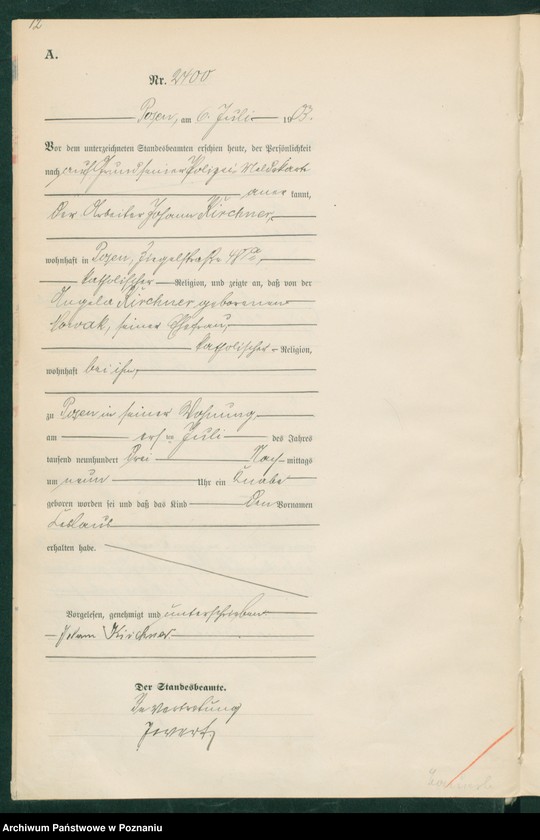 12
A.
Nr. 2400
Posen, am 6. Juli 1903.
Vor dem unterzeichneten Standesbeamten erschien heute, der Persönlichkeit
nach auf Grund seiner Polizei Meldekarte
anerkannt,
der Arbeiter Johann Kirchner,
wohnhaft in Posen, Ziegelstraße
katholischer Religion, und zeigte an, daß von der
Angela Kirchner geborenen
Nowak, seiner Ehefrau,
katholischer Religion,
wohnhaft bei ihm,
zu Posen in seiner Wohnung
am ersten Juli des Jahres
tausend neunhundert drei Nachmittags
um neun Uhr ein Knabe
geboren worden sei und daß das Kind den Vornamen
erhalten habe.
Vorgelesen, genehmigt und unterschrieben
Johann Kirchner
Der Standesbeamte.
In Vertretung
Archiwum Państwowe w Poznaniu